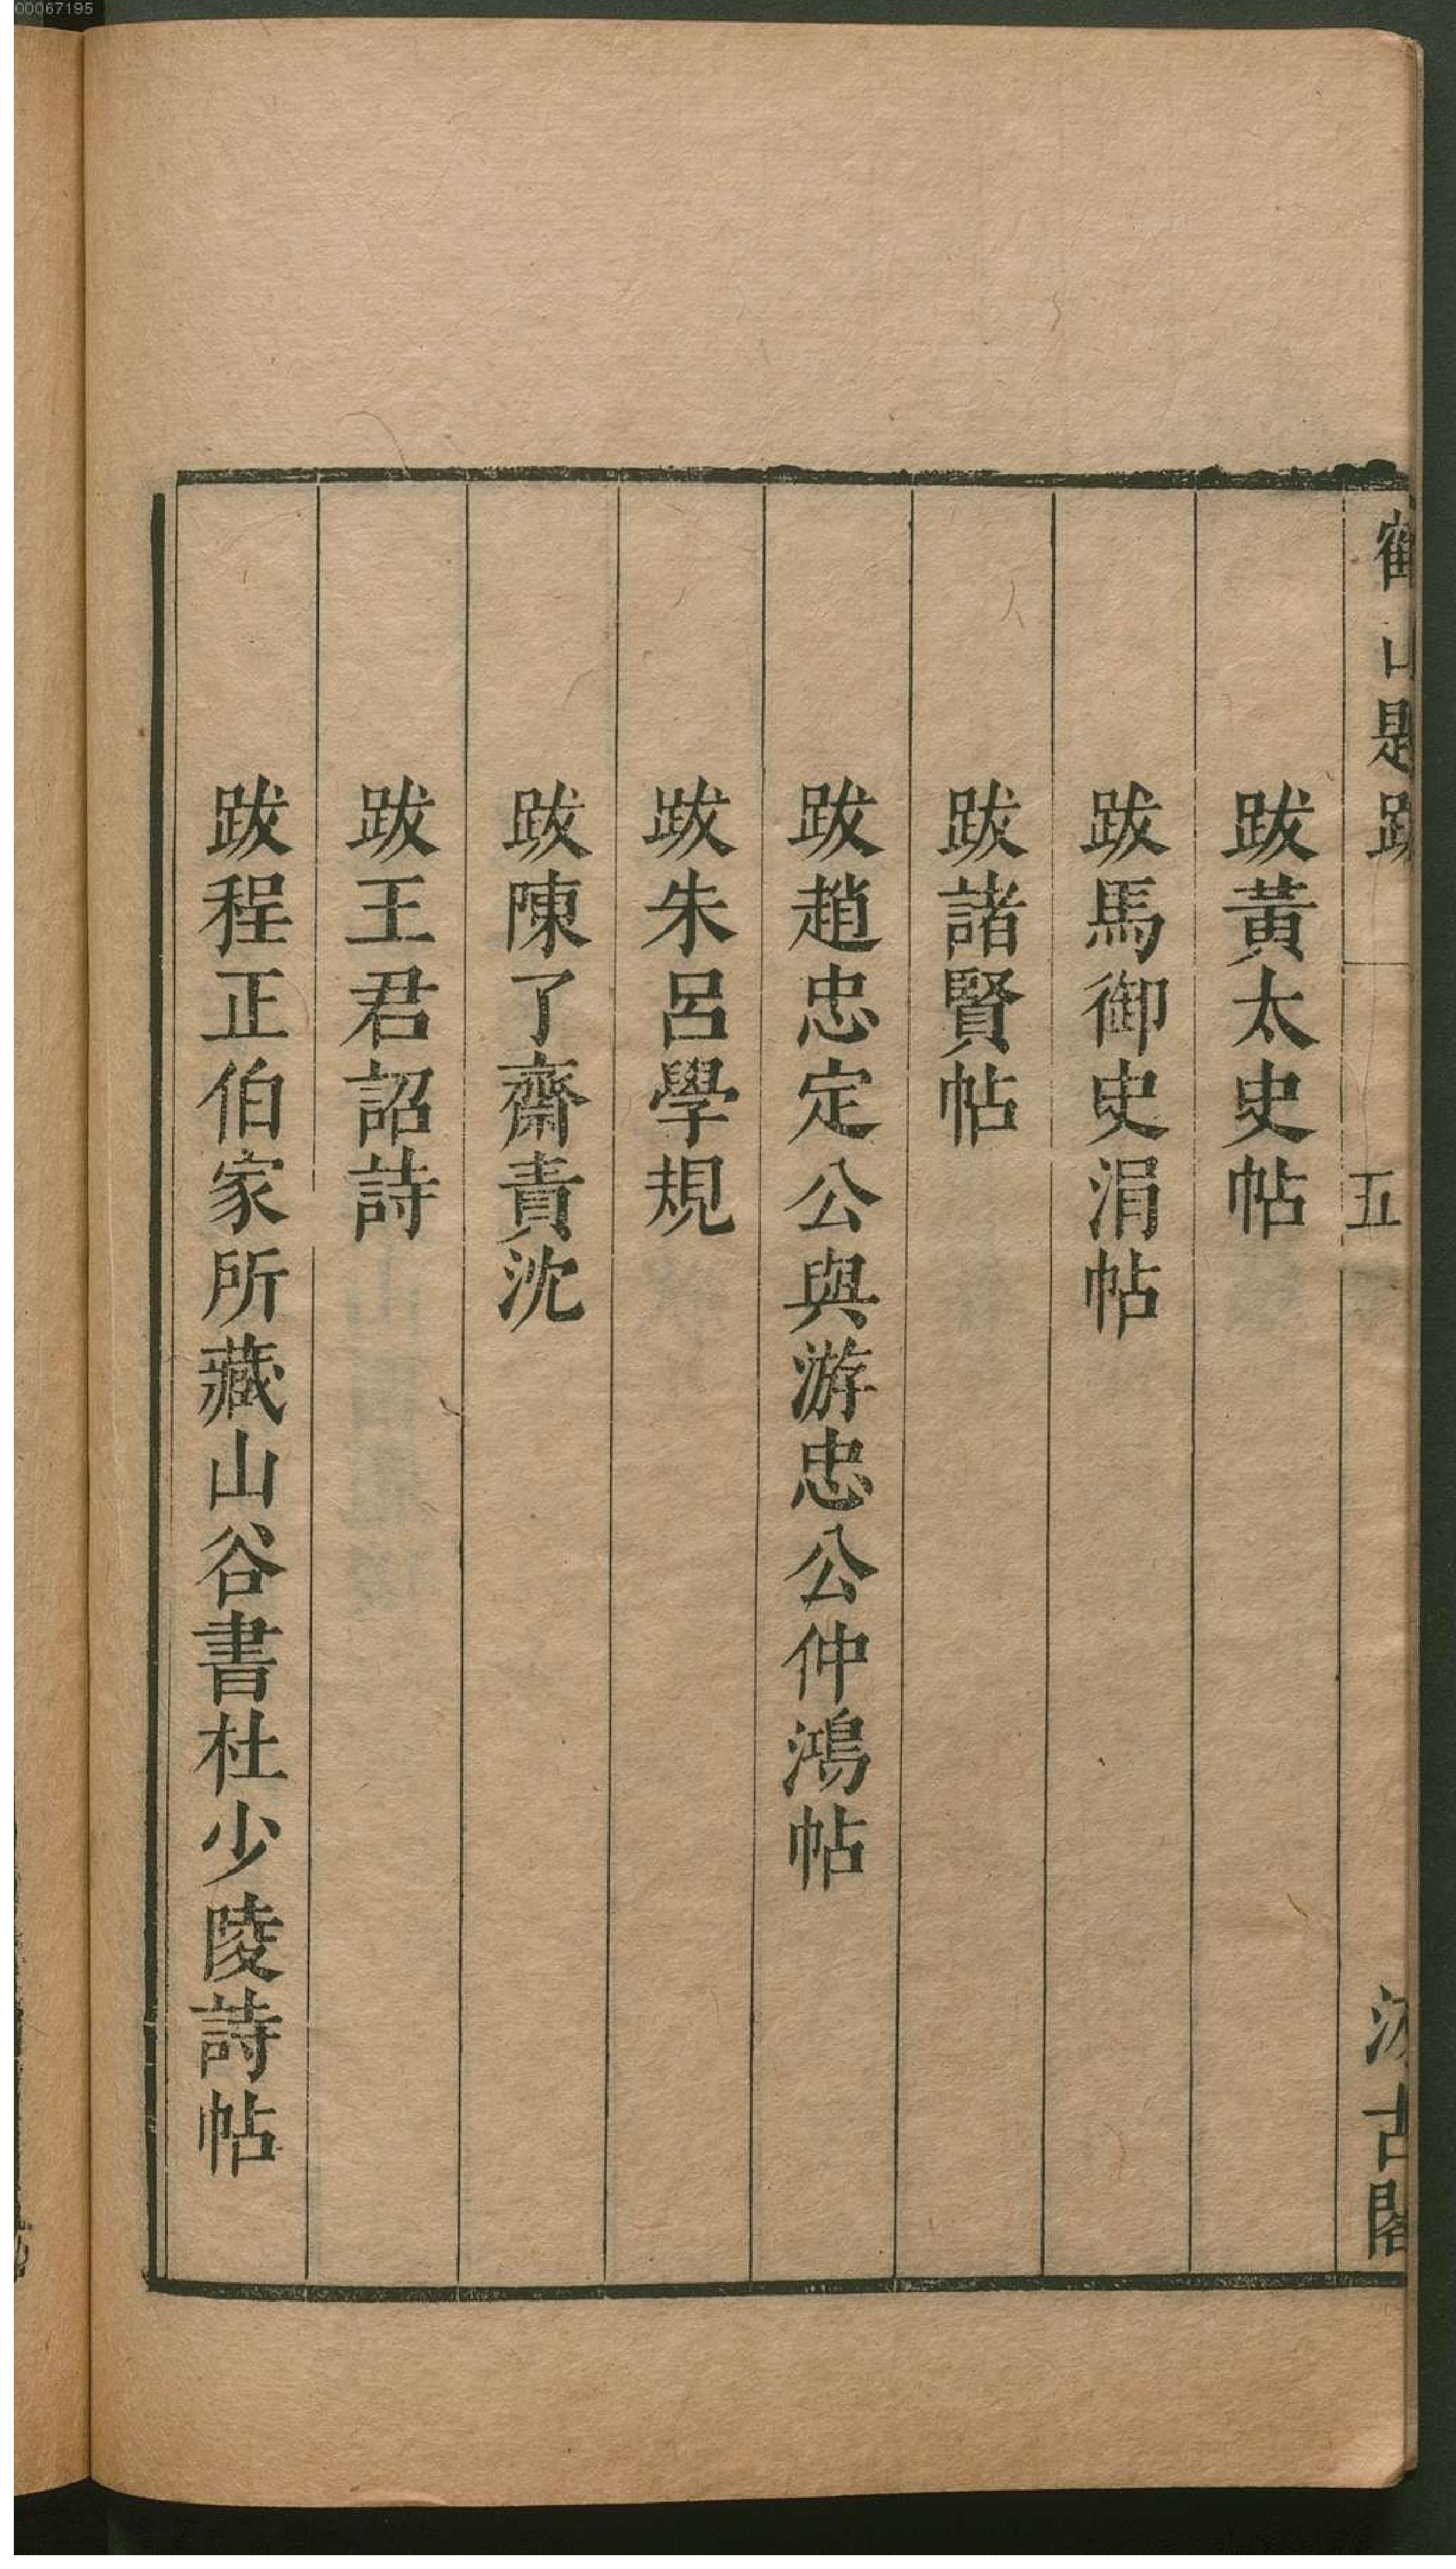 鶴山題跋 五 汲古閣
跋黃太史帖
跋馬御史涓帖
跋諸賢帖
跋趙忠定公與游忠公仲鴻帖
跋朱呂學規
跋陳了齋責沈
跋王君詔詩
跋程正伯家所藏山谷書杜少陵詩帖
00067195